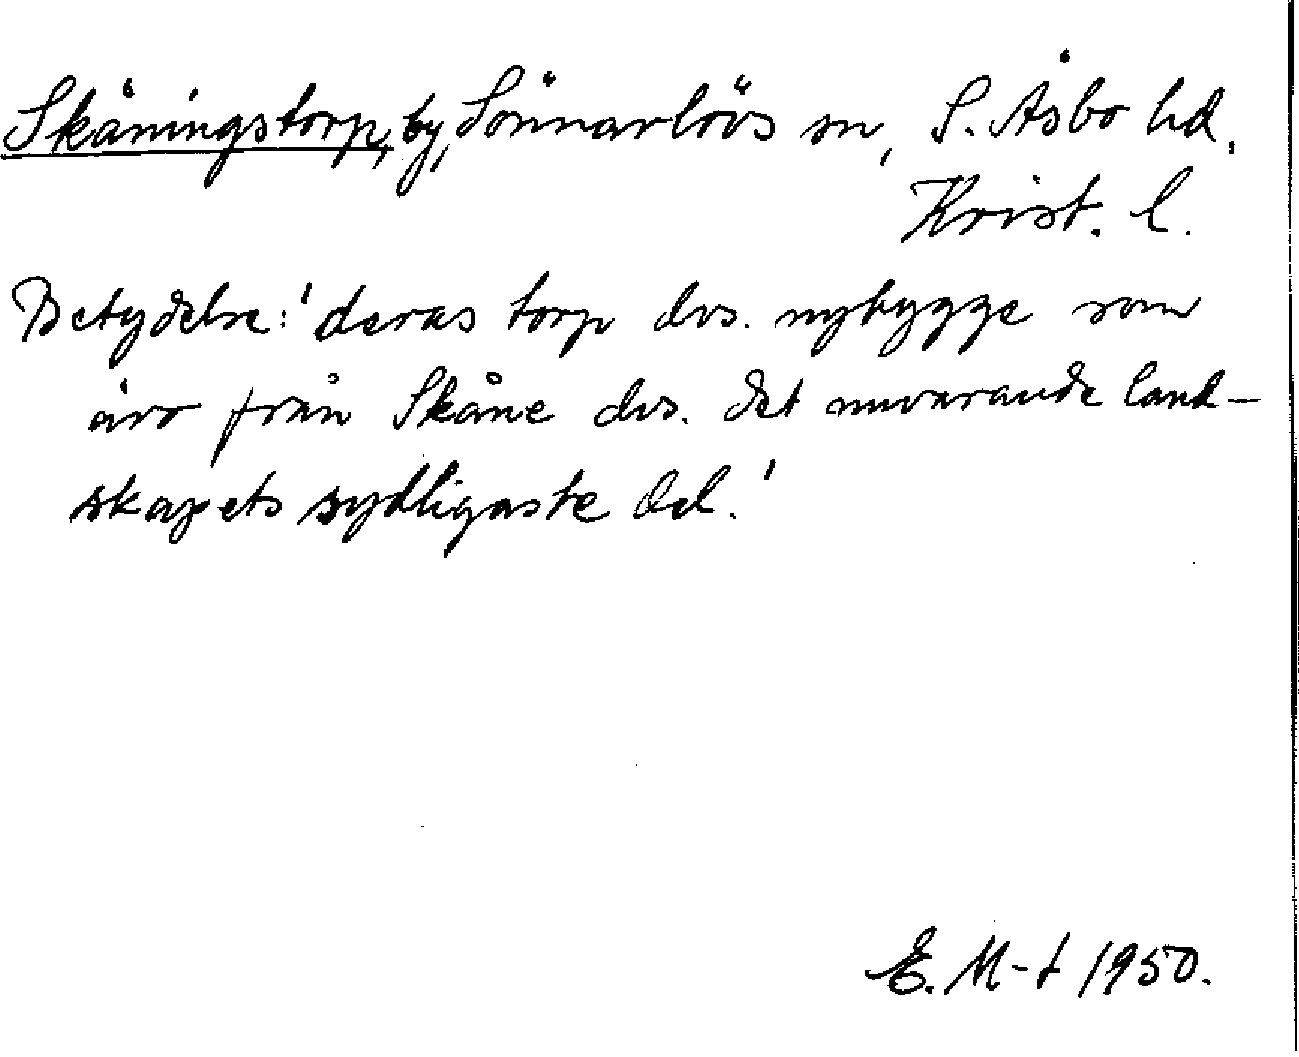 Skåningstorp, by, Sönnarlövs sn, S. Åsbo hd,
Krist. l.
Betydelse: 'deras torp dvs. nybygge som
äro från Skåne dvs. det nuvarande land-
skapets sydligaste del.'
E. M-t 1950.